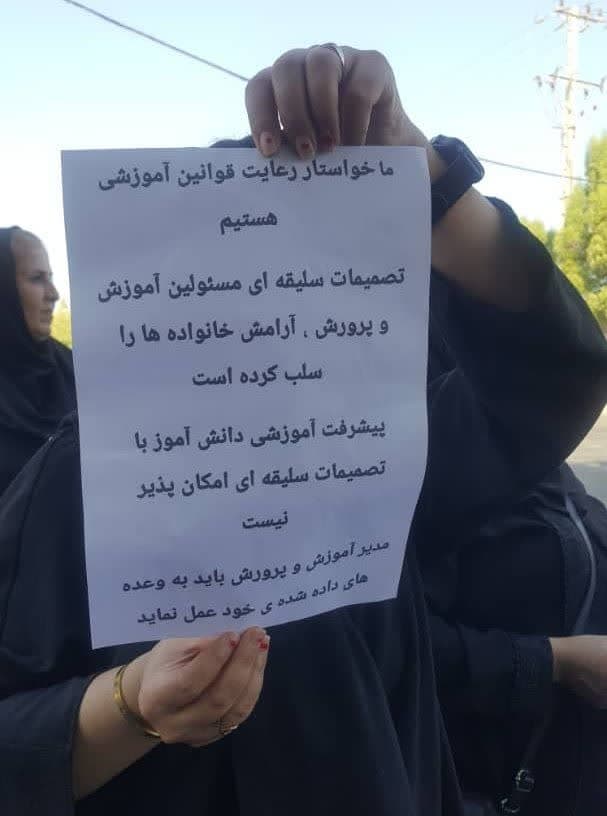 ما خواستار رعایت قوانین آموزشی
هستیم
تصمیمات سلیقه ای مسئولین آموزش
و پرورش ، آرامش خانواده ها را
سلب کرده است
پیشرفت آموزشی دانش آموز با
تصمیمات سلیقه ای امکان پذیر
نیست
مدیر آموزش و پرورش باید به وعده
های داده شده ی خود عمل نماید